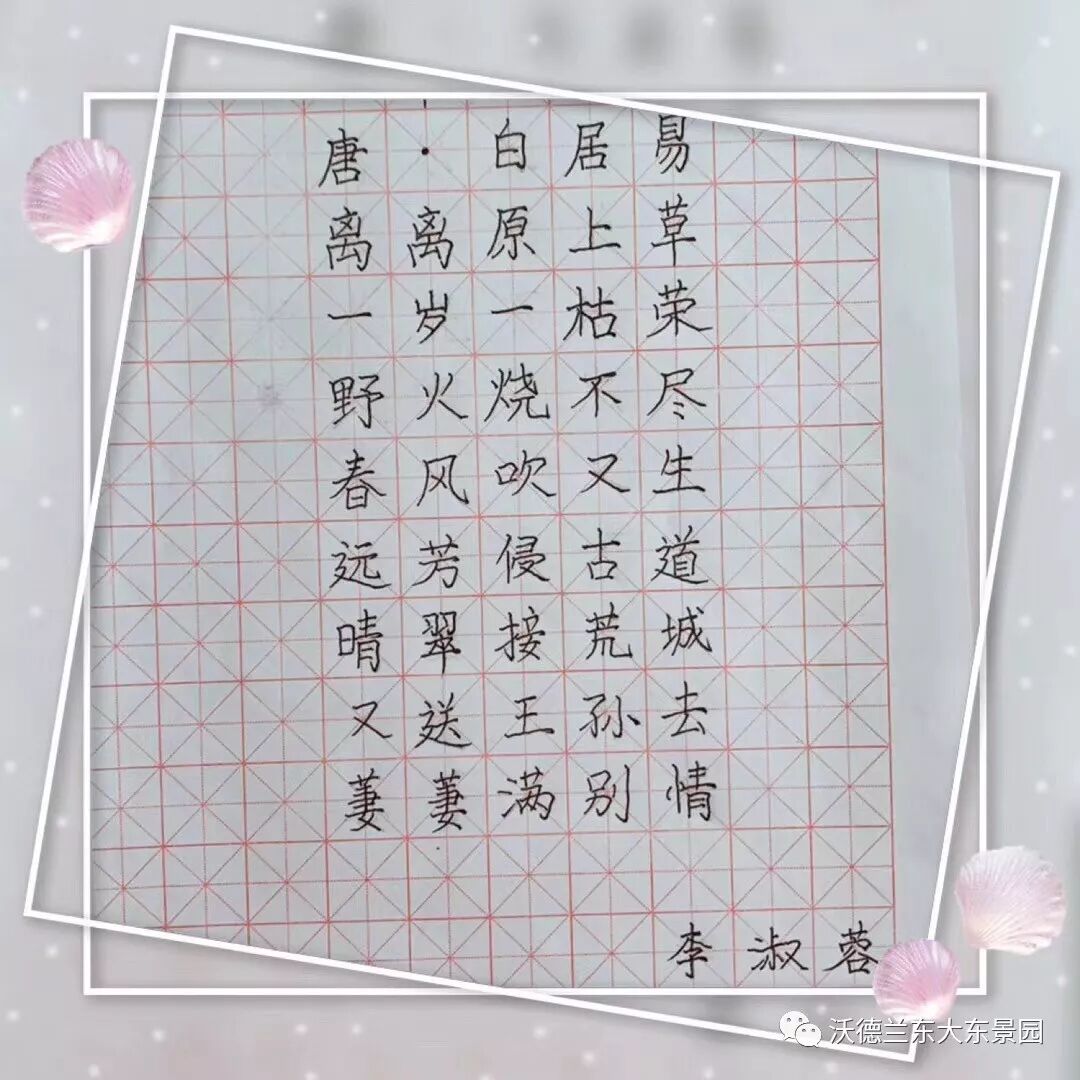 唐·白居易
离离原上草
一岁一枯荣
野火烧不尽
春风吹又生
远芳侵古道
晴翠接荒城
又送王孙去
萋萋满别情
李淑蓉
沃德兰东大东景园